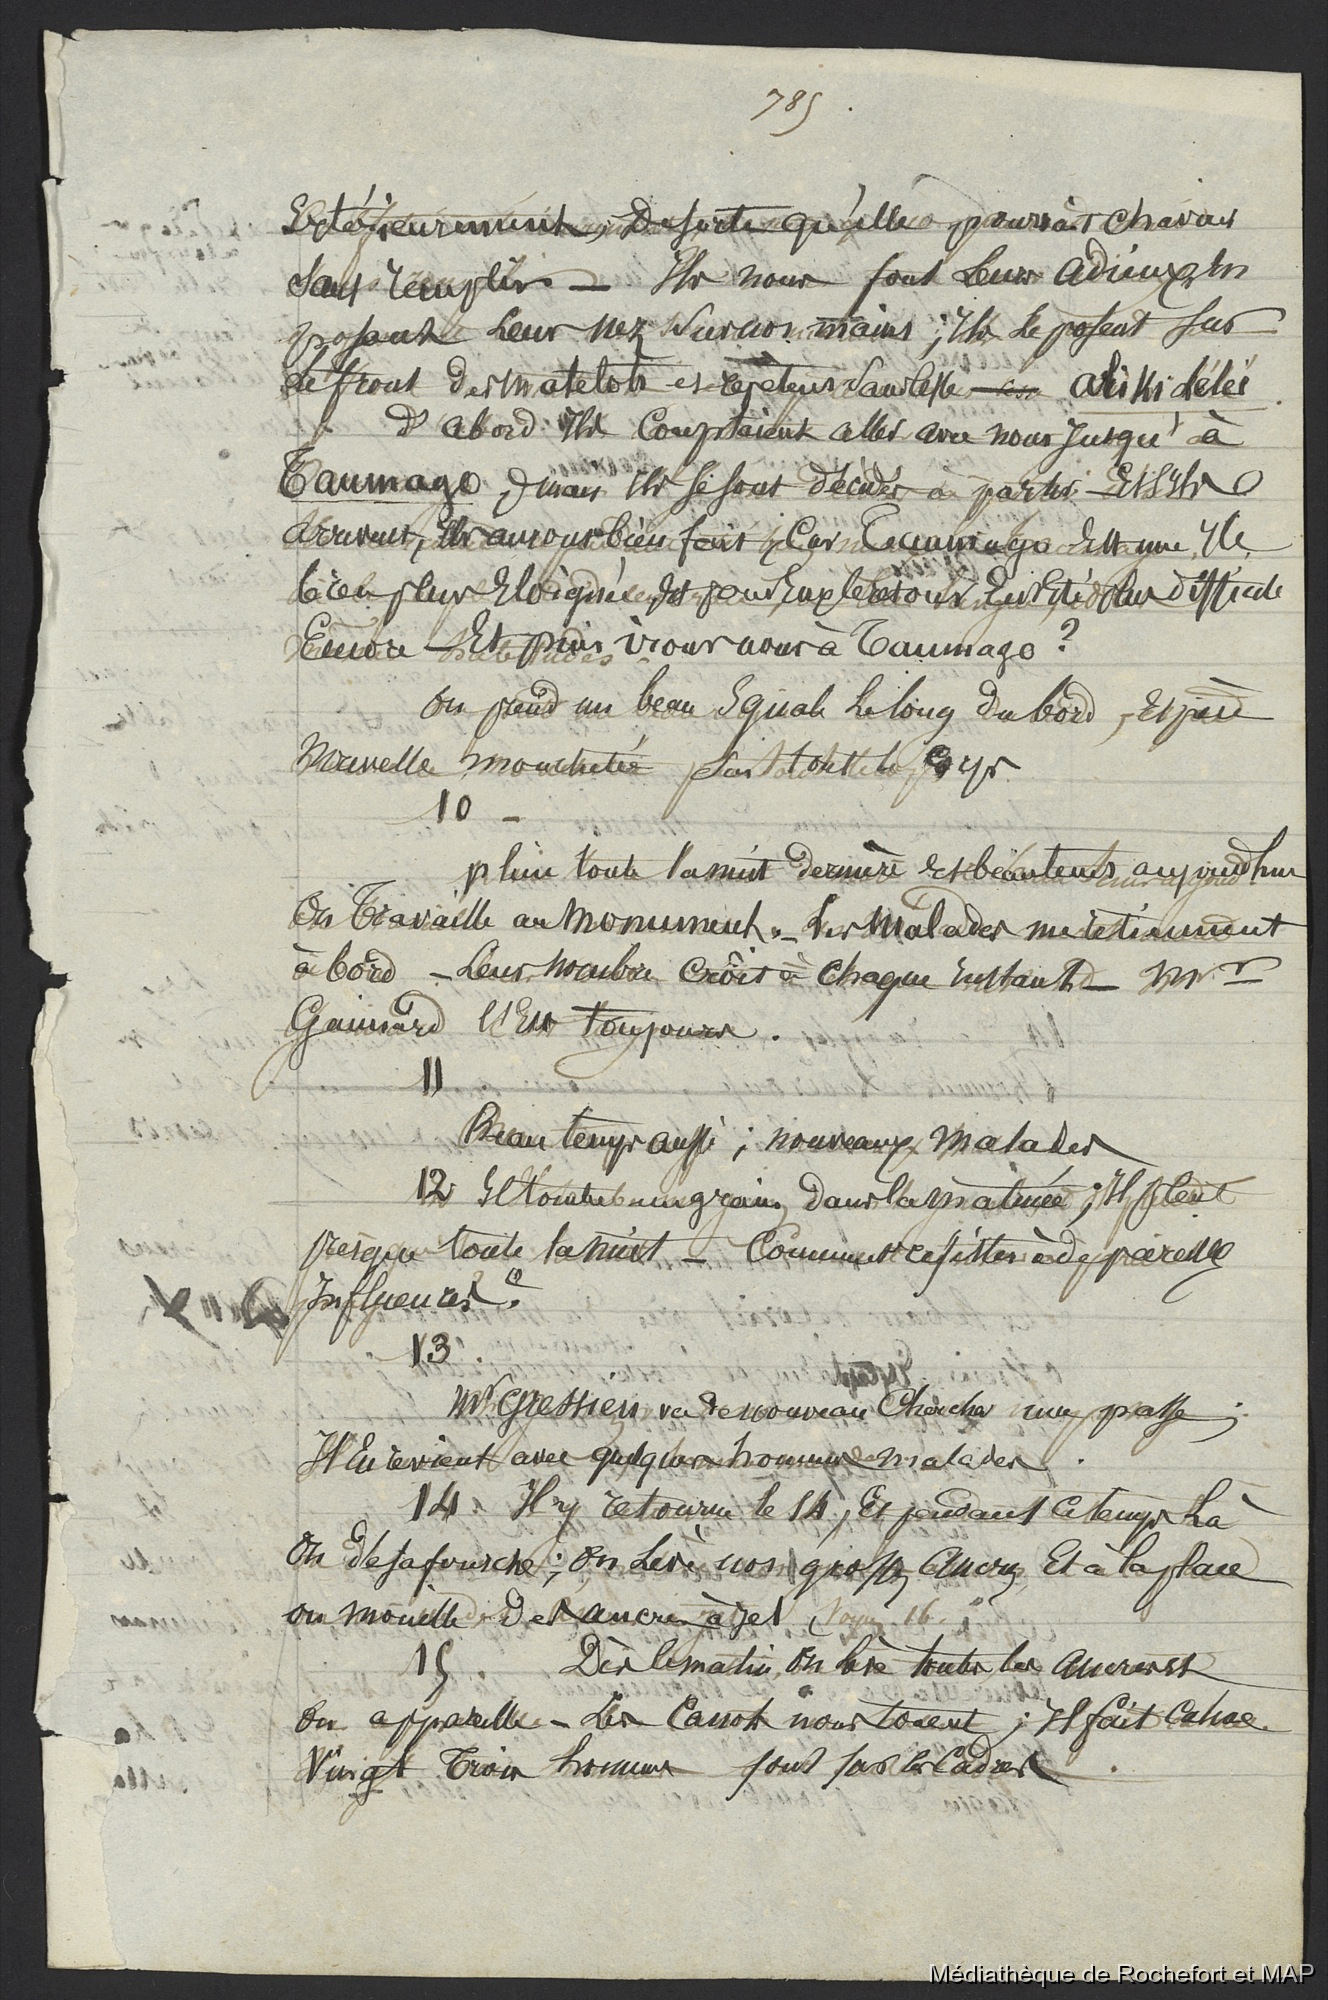 785
Extérieurement, De sorte qu'elle pourrait chavirer
sans remplir — Ils nous font Leurs adieux En
posant Leur nez sur nos mains ; Ils le posent sur
Le front Des matelots et répètent sans cesse ariki lélei
D'abord Ils Comptaient aller avec nous Jusqu'à
Taumago, mais Ils se sont décidés à partir — Et s'Ils
arrivent, Ils auront bien fait, Car Taumago Est une Ile
bien plus Eloignée, Et pour Eux le retour Eut été plus difficile
Encore — Et puis irons nous à Taumago ?
On prend un beau Squale Le long Du bord, Espèce
Nouvelle mouchetée sur tout le corps
10 -
pluie toute la nuit Dernière Et beau temps aujourd'hui
On Travaille au Monument. — Les Malades me retiennent
à bord — Leur nombre Croît à Chaque Instant — Mr
Gaimard L'Est toujours.
11
Beau temps aussi ; nouveaux Malades
12 Il tombe un grain dans la Matinée ; Il pleut
presque toute la Nuit — Comment résister à de pareilles
Influences ?
13.
Mr Gressien va De nouveau Chercher une passe ;
Il En revient avec quelques hommes malades.
14. Il y retourne le 14, Et pendant Ce temps Là
On désafourche ; On Lève nos grosses ancres Et à la place
on mouille Des ancres à jet Voyez 16.
15. Dès le matin On lève toutes les ancres Et
On appareille — Les Canots nous touent ; Il fait Calme.
Vingt Trois hommes sont sur les Cadres.
Médiathèque de Rochefort et MAP